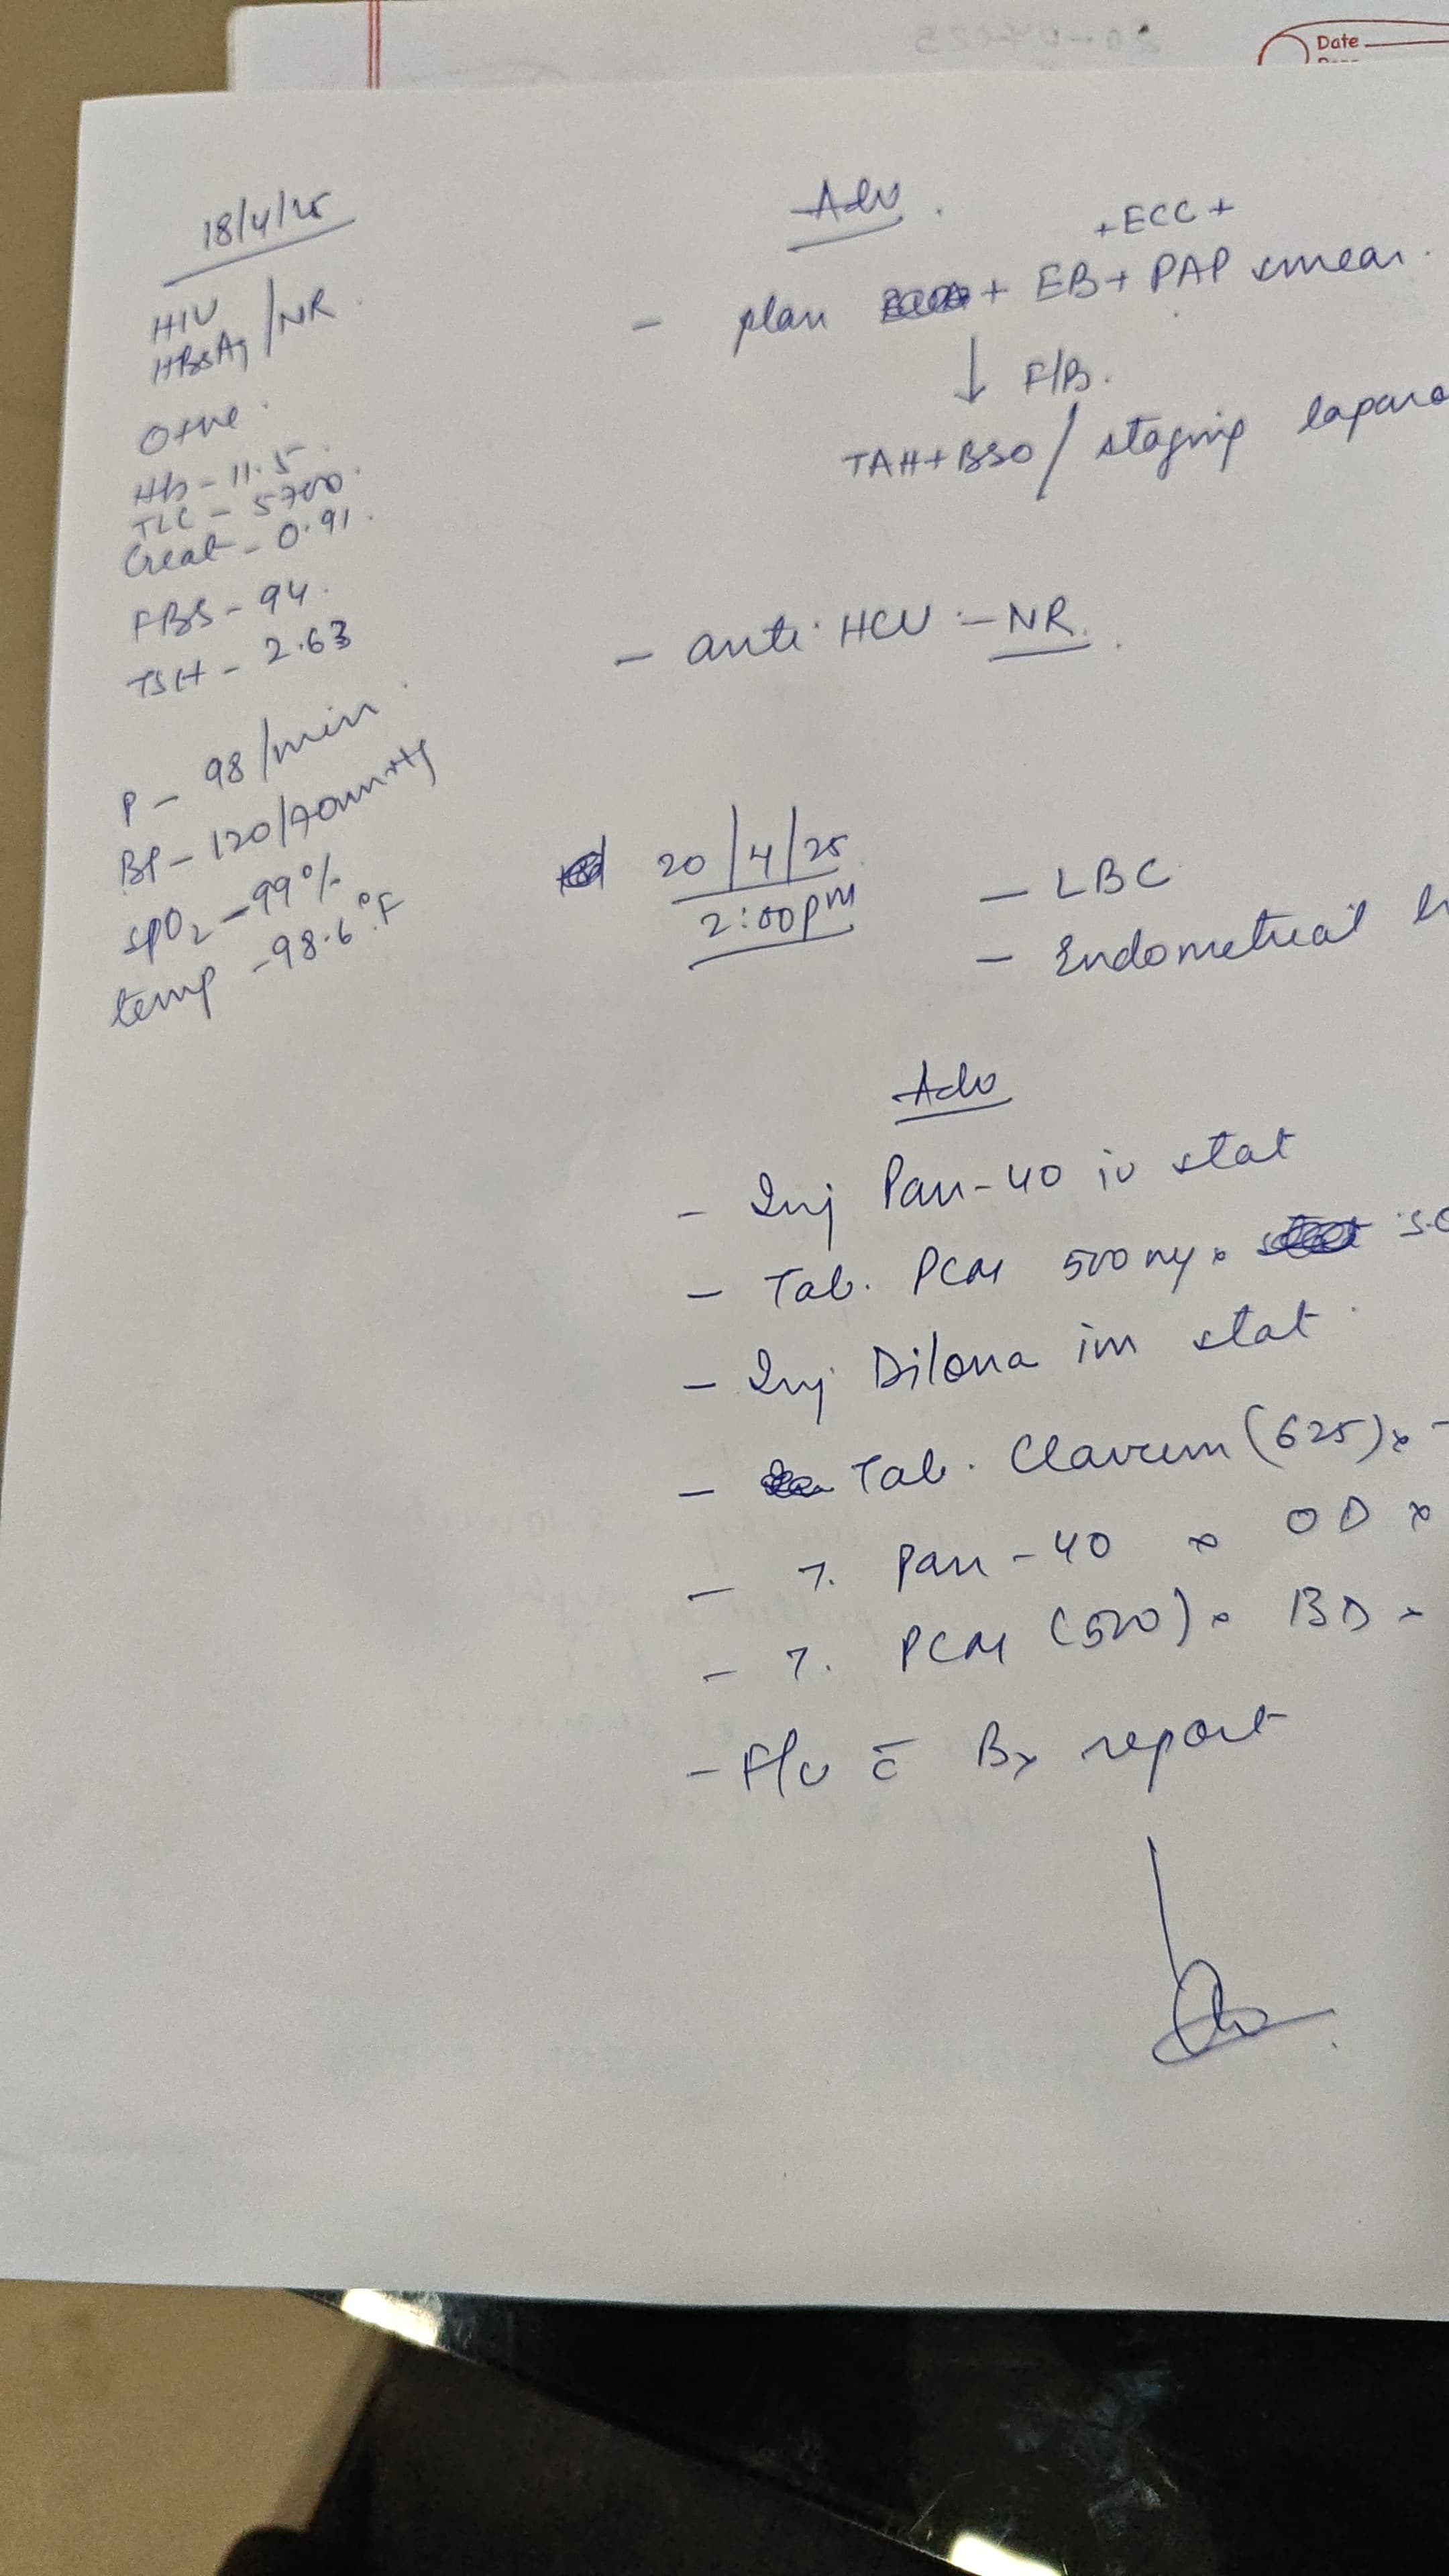 Date
18/4/25
HIV
HBsAg / NR
O+ve
Hb - 11.5
TLC - 5700
Creat - 0.91
FBS - 94
TSH - 2.63
P - 98/min
BP - 120/70mmHg
SpO2 - 99%
temp - 98.6°F
Adv
+ECC+
- plan + EB + PAP smear
↓ F/B.
TAH+BSO / staging laparo
- anti HCV :- NR.
20/4/25
2:00pm
- LBC
- Endometrial
Adv
- Inj Pan-40 iv stat
- Tab. PCM 500mg x
- Inj Dilona im stat
- Tab. Clavum (625) x
- T. Pan-40 x OD x
- T. PCM (500) x BD x
- F/U c̄ Bx report